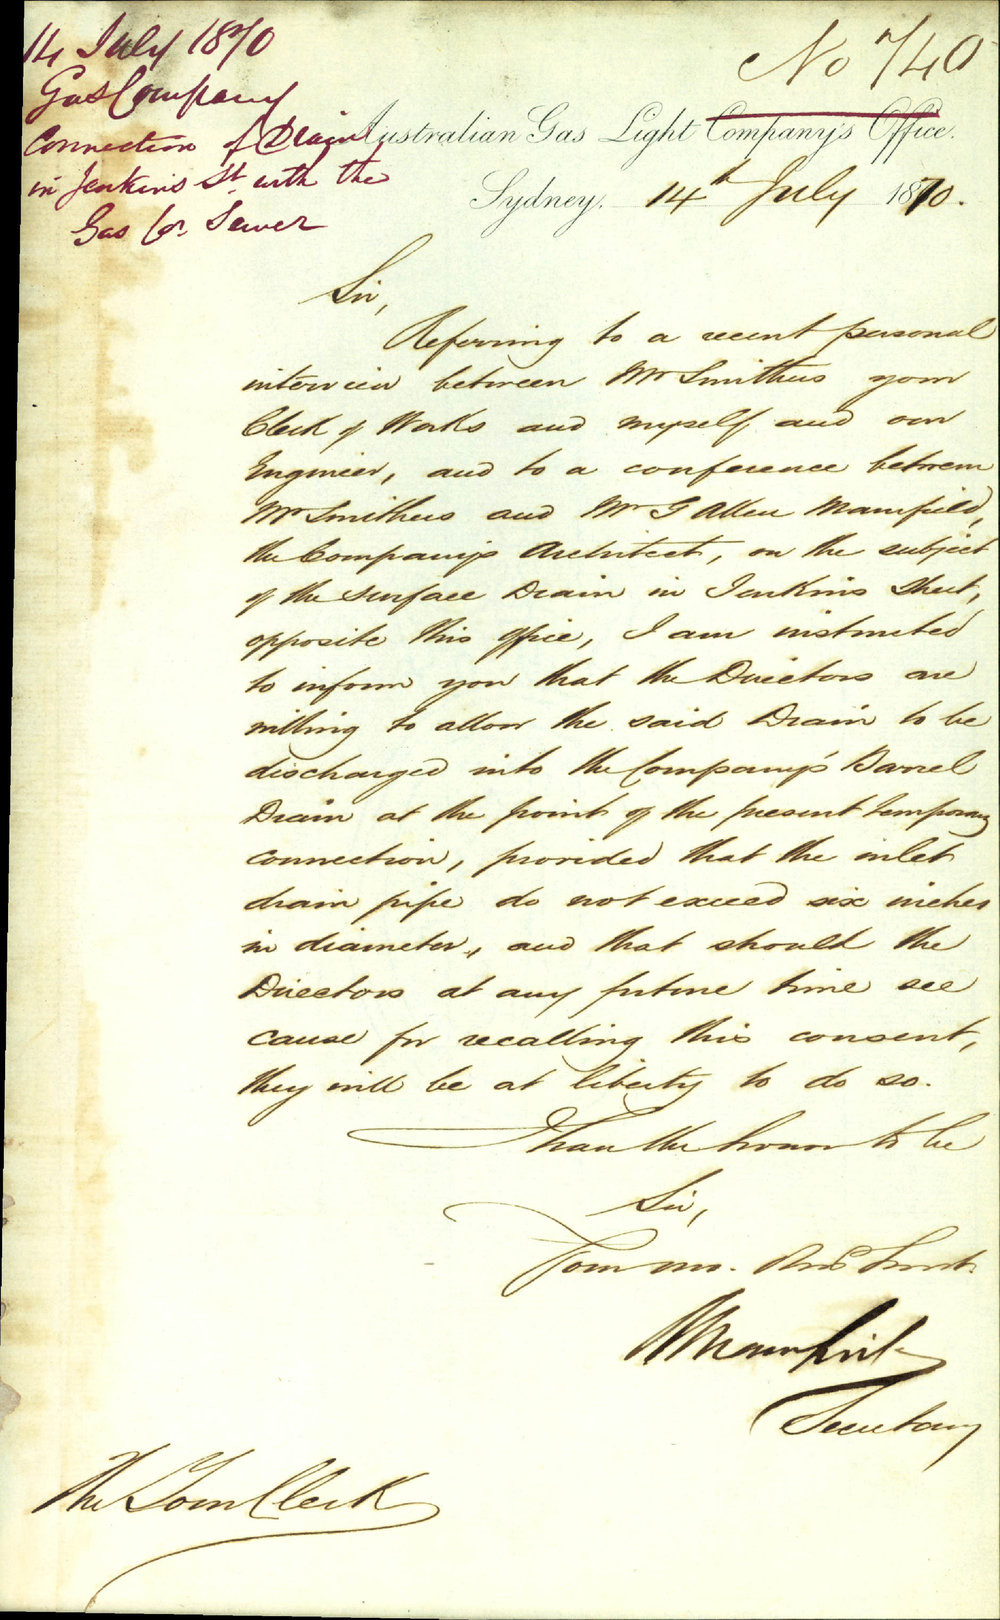 14 July 1870
Gas Company
Connection of Drain
in Jenkins St. with the
Gas Co. Sewer
No 740
Australian Gas Light Company's Office.
Sydney. 14th July 1870.
Sir,
Referring to a recent personal
interview between Mr Smithers your
Clerk of Works and myself and our
Engineer, and to a conference between
Mr Smithers and Mr G Allen Mansfield,
the Company's Architect, on the subject
of the surface Drain in Jenkins Street,
opposite this office, I am instructed
to inform you that the Directors are
willing to allow the said Drain to be
discharged into the Company's Barrel
Drain at the point of the present temporary
connection, provided that the inlet
drain pipe do not exceed six inches
in diameter, and that should the
Directors at any future time see
cause for recalling this consent,
they will be at liberty to do so.
I have the honor to be
Sir,
Your mo. Obd Servt.
Secretary
The Town Clerk